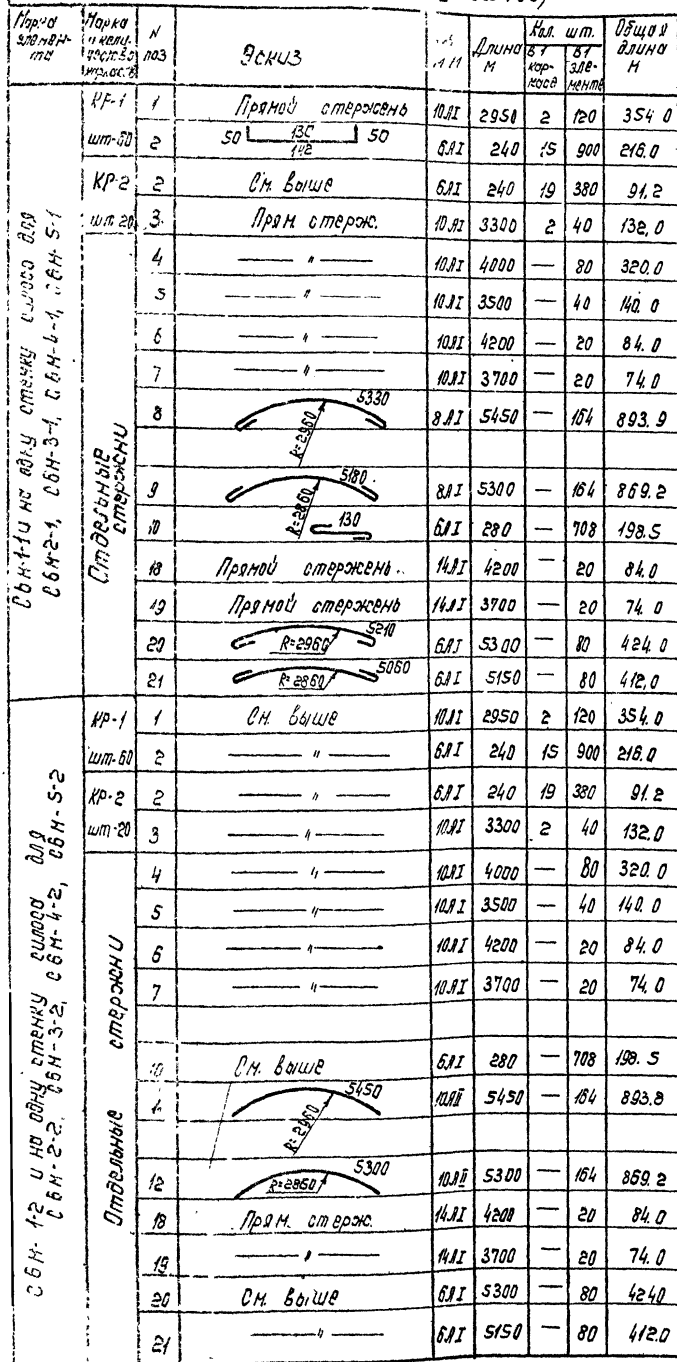 Марка элемен-та | Марка и коли-чество каркасов | N поз | Эскиз | мм | Длина м | Кол. шт. в 1 кар-касе | Кол. шт. в 1 эле-менте | Общая длина м
Сбн-1-1 и на одну стенку силоса для Сбн-2-1, Сбн-3-1, Сбн-4-1, Сбн-5-1
КР-1 | 1 | Прямой стержень | 10АI | 2950 | 2 | 120 | 354.0
шт-60 | 2 | 50 130 142 50 | 6АI | 240 | 15 | 900 | 216.0
КР-2 | 2 | См. выше | 6АI | 240 | 19 | 380 | 91.2
шт 20 | 3 | Прям. стерж. | 10АI | 3300 | 2 | 40 | 132,0
Отдельные стержни
4 | — " — | 10АI | 4000 | — | 80 | 320.0
5 | — " — | 10АI | 3500 | — | 40 | 140.0
6 | — " — | 10АI | 4200 | — | 20 | 84.0
7 | — " — | 10АI | 3700 | — | 20 | 74.0
8 | 5330 R=2960 | 8АI | 5450 | — | 164 | 893.9
9 | 5180 R=2860 | 8АI | 5300 | — | 164 | 869.2
10 | 130 | 6АI | 280 | — | 708 | 198.5
18 | Прямой стержень | 14АI | 4200 | — | 20 | 84.0
19 | Прямой стержень | 14АI | 3700 | — | 20 | 74.0
20 | 5210 R=2960 | 6АI | 5300 | — | 80 | 424.0
21 | 5060 R=2860 | 6АI | 5150 | — | 80 | 412,0
Сбн-1-2 и на одну стенку силоса для Сбн-2-2, Сбн-3-2, Сбн-4-2, Сбн-5-2
КР-1 | 1 | См. выше | 10АI | 2950 | 2 | 120 | 354.0
шт-60 | 2 | — " — | 6АI | 240 | 15 | 900 | 216.0
КР-2 | 2 | — " — | 6АI | 240 | 19 | 380 | 91.2
шт-20 | 3 | — " — | 10АI | 3300 | 2 | 40 | 132.0
Отдельные стержни
4 | — " — | 10АI | 4000 | — | 80 | 320.0
5 | — " — | 10АI | 3500 | — | 40 | 140.0
6 | — " — | 10АI | 4200 | — | 20 | 84.0
7 | — " — | 10АI | 3700 | — | 20 | 74.0
10 | См. выше | 6АI | 280 | — | 708 | 198.5
5450 R=2960 | 10АII | 5450 | — | 164 | 893.8
12 | 5300 R=2860 | 10АII | 5300 | — | 164 | 869.2
18 | Прям. стерж. | 14АI | 4200 | — | 20 | 84.0
19 | — " — | 14АI | 3700 | — | 20 | 74.0
20 | См. выше | 6АI | 5300 | — | 80 | 424.0
21 | — " — | 6АI | 5150 | — | 80 | 412.0